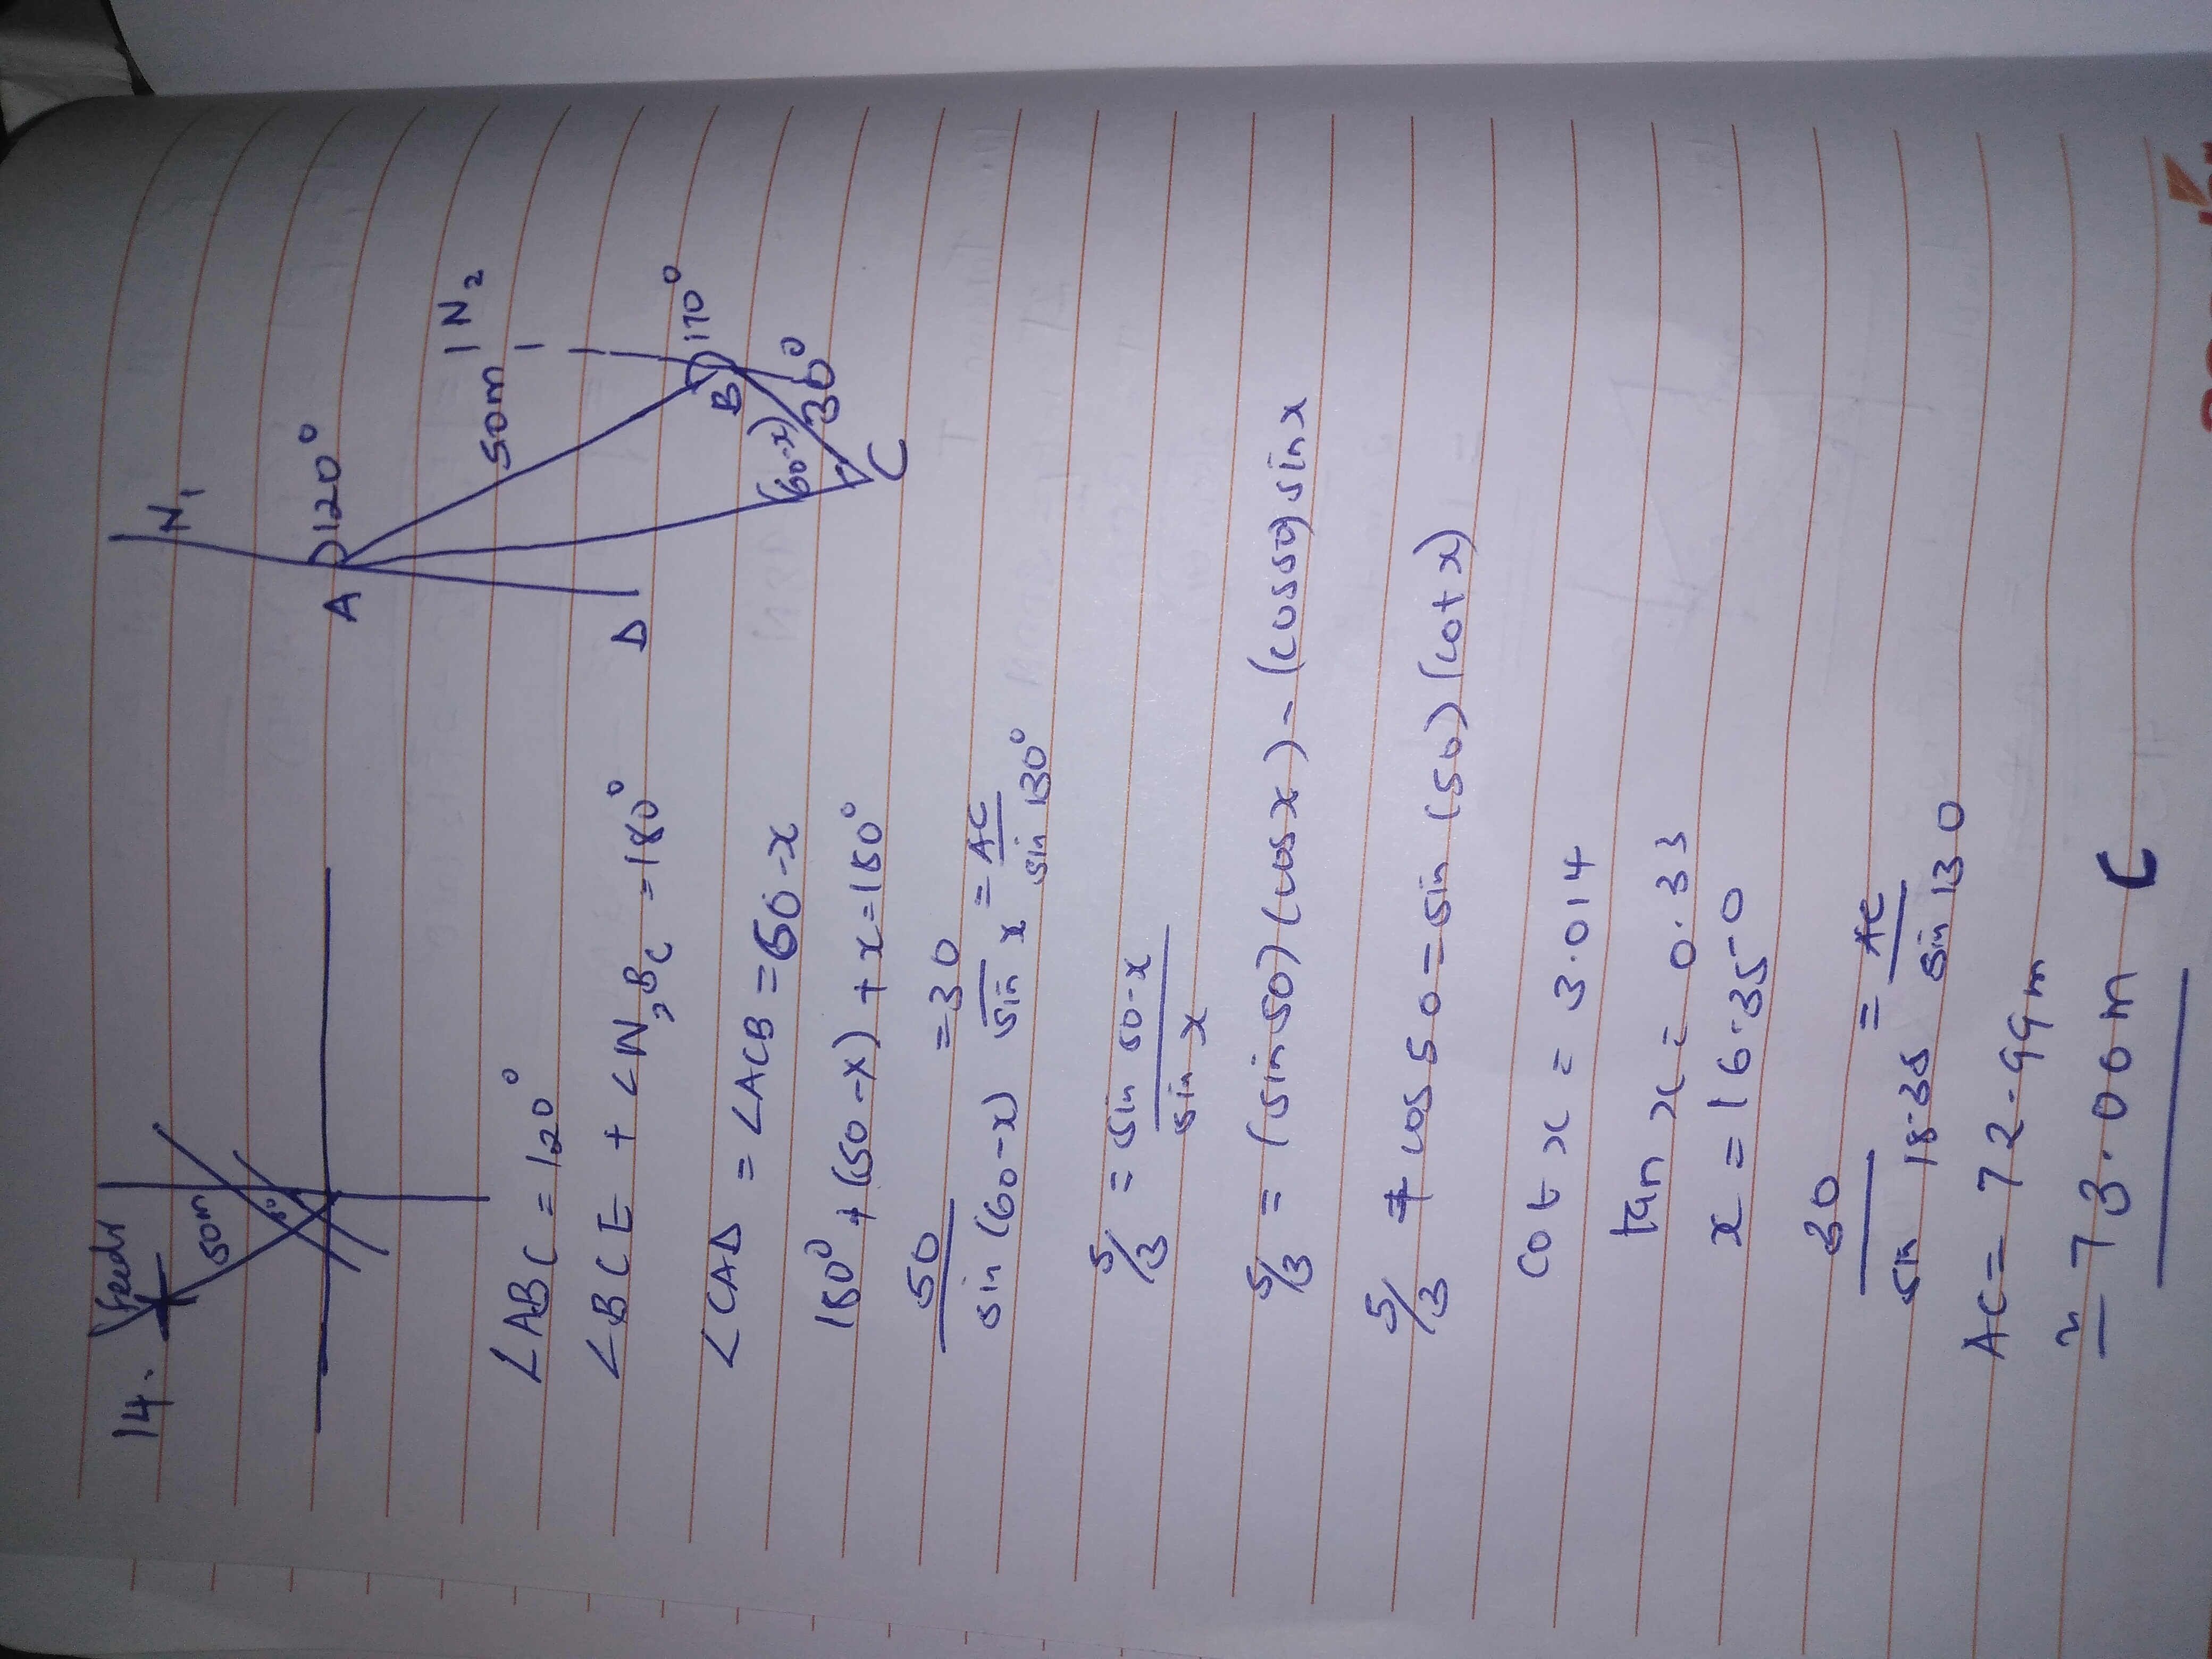 14.
50m
N₁
120°
A
50m
N₂
170°
B
(60-x)
30°
C
D
∠ABC = 120°
∠BCE + ∠N₂BC = 180°
∠CAD = ∠ACB = 60-x
180° + (50-x) + x = 180°
50/sin(60-x) = 30/sin x = AC/sin 130°
5/3 = sin 50-x/sin x
5/3 = (sin 50)(cos x) - (cos 50) sin x
5/3 + cos 50 = sin (50) (cot x)
cot x = 3.014
tan x = 0.33
x = 16.35-0
30/sin 18.35 = AC/sin 130
AC = 72.99m
≃ 73.00m C